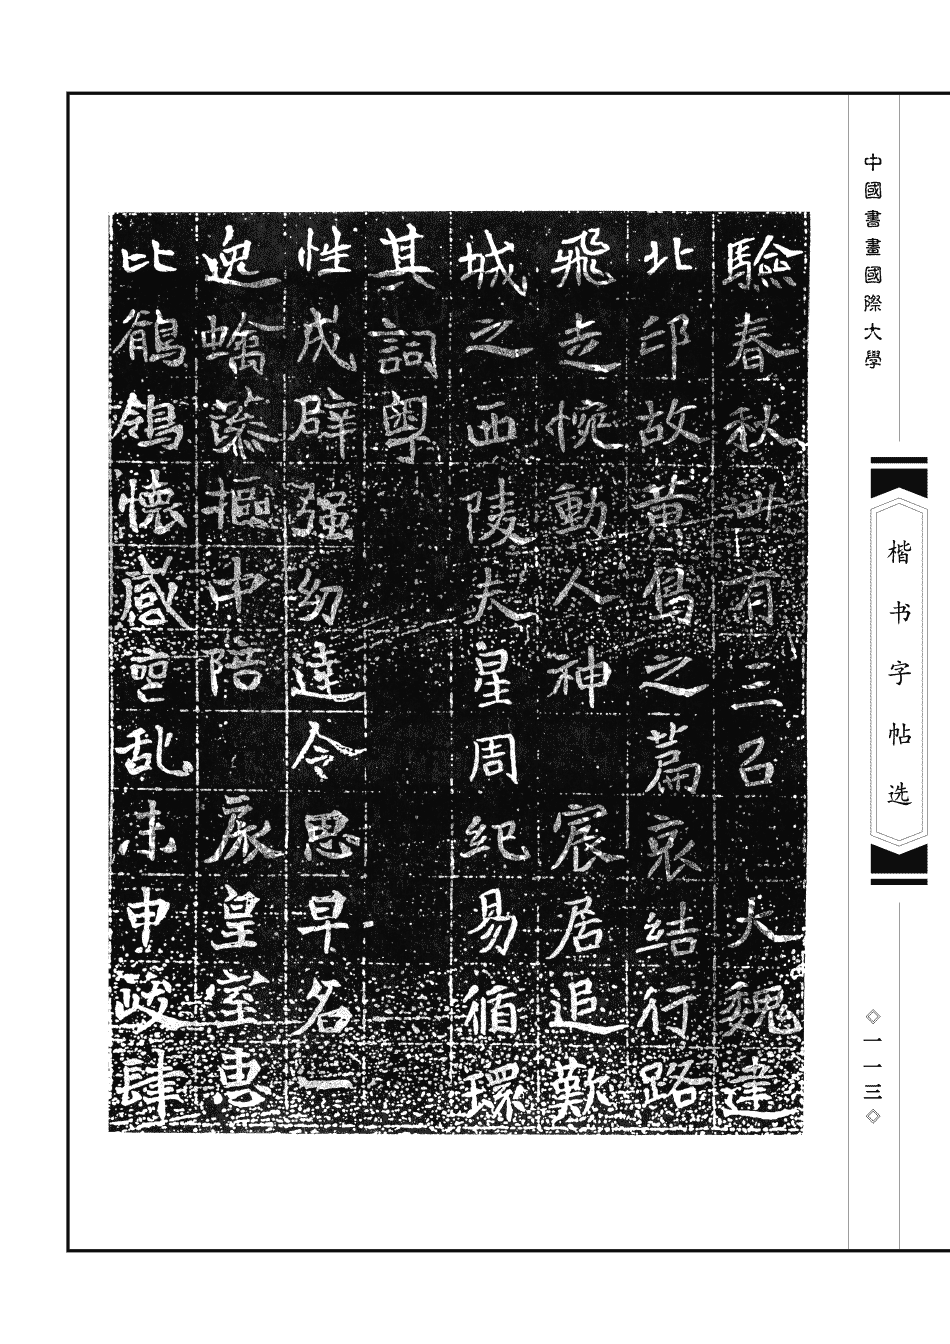 中國書畫國際大學
楷书字帖选
一一三
驗春秋卌有三召大魏達
北邙故黄鳥之篇哀結行路
飛走惋動人神宸居追歎
城之西陵夫星周紀易循環
其詞粤
性成辟强幼達令思早名一
逸中陪皇室惠
比鶺鴒懷感乱未申肆